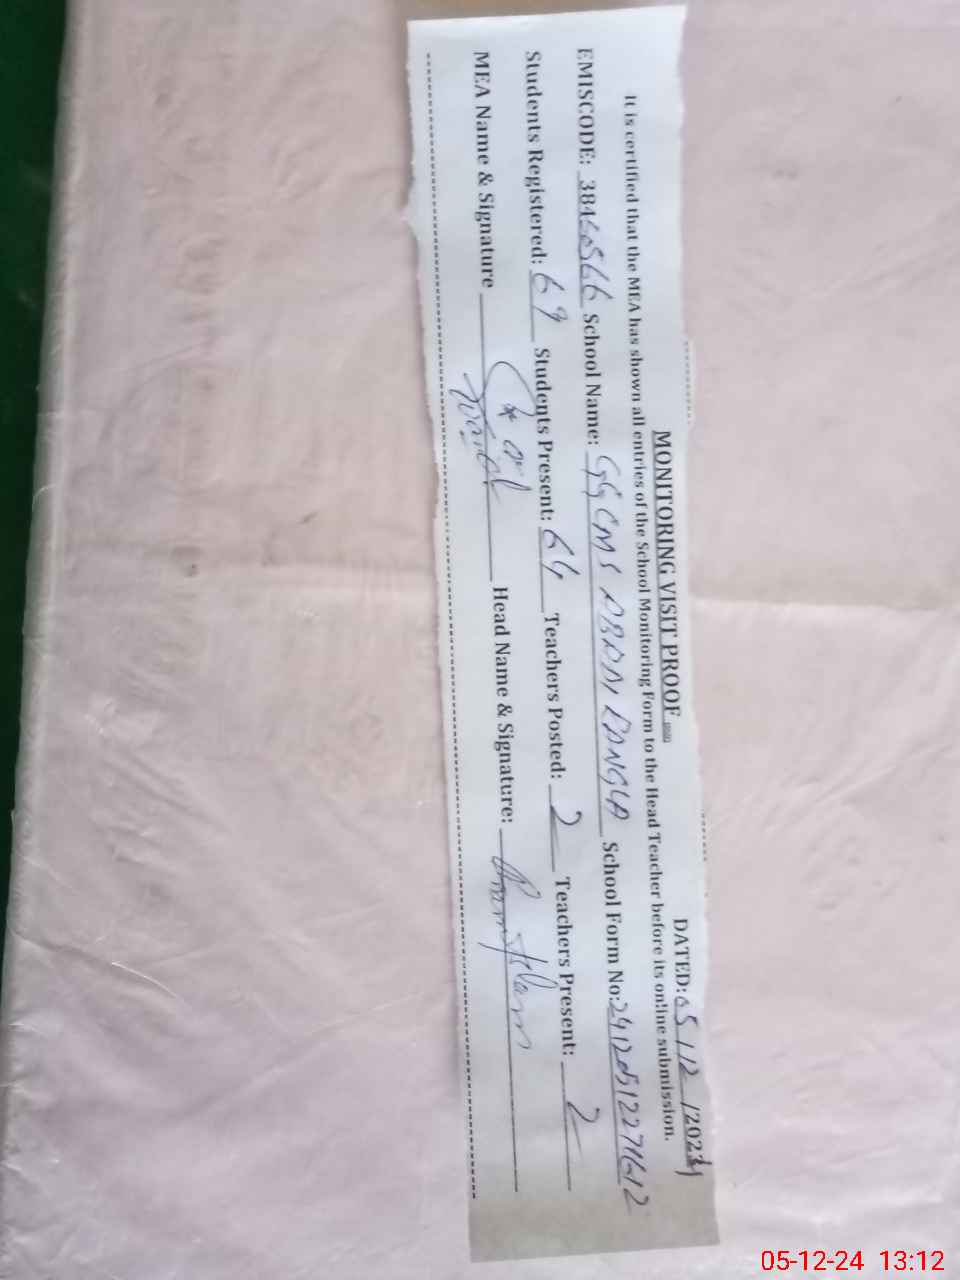 MONITORING VISIT PROOF
DATED: 05/12/2024
It is certified that the MEA has shown all entries of the School Monitoring Form to the Head Teacher before its online submission.
EMISCODE: 38450566 School Name: GGCMS ABADI RANGLA School Form No: 241205122711612
Students Registered: 69 Students Present: 64 Teachers Posted: 2 Teachers Present: 2
MEA Name & Signature Head Name & Signature:
05-12-24 13:12